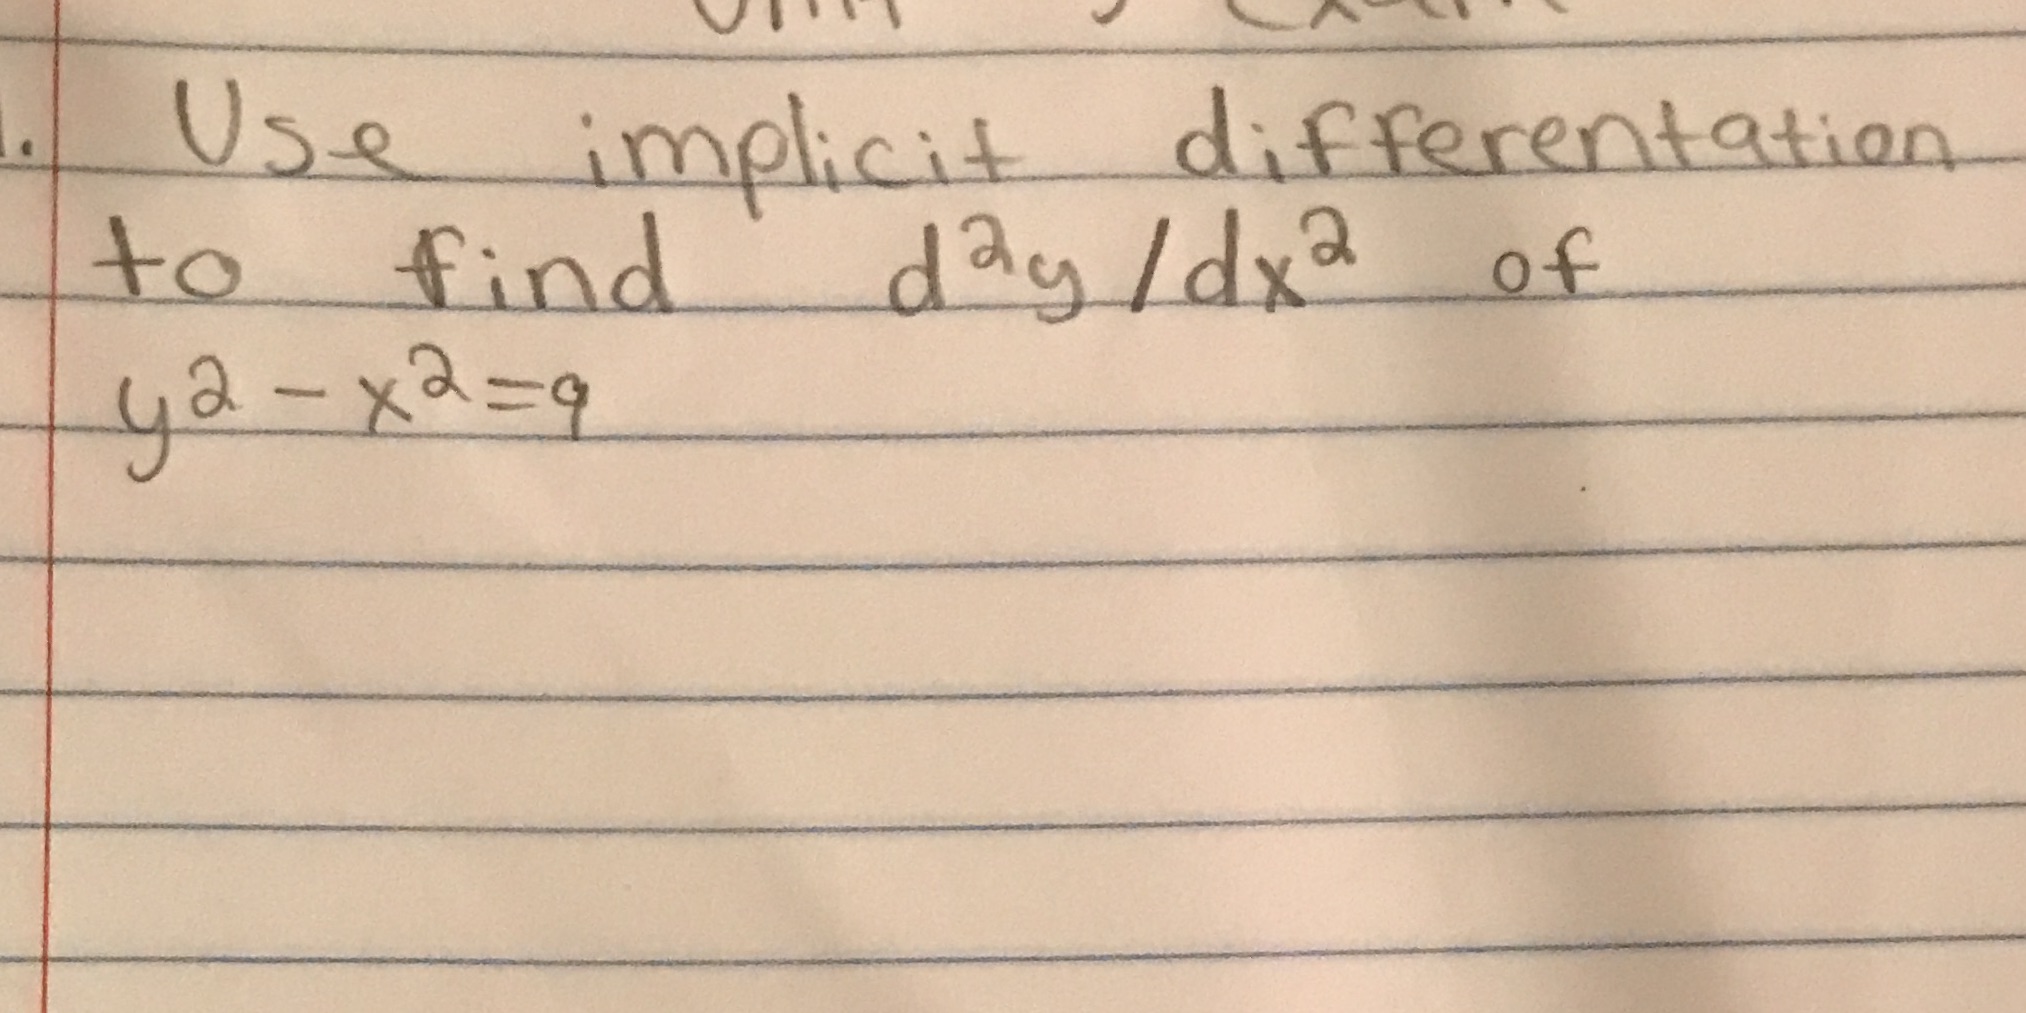 1. Use implicit differentation
to find d²y/dx² of
y² - x² = 9